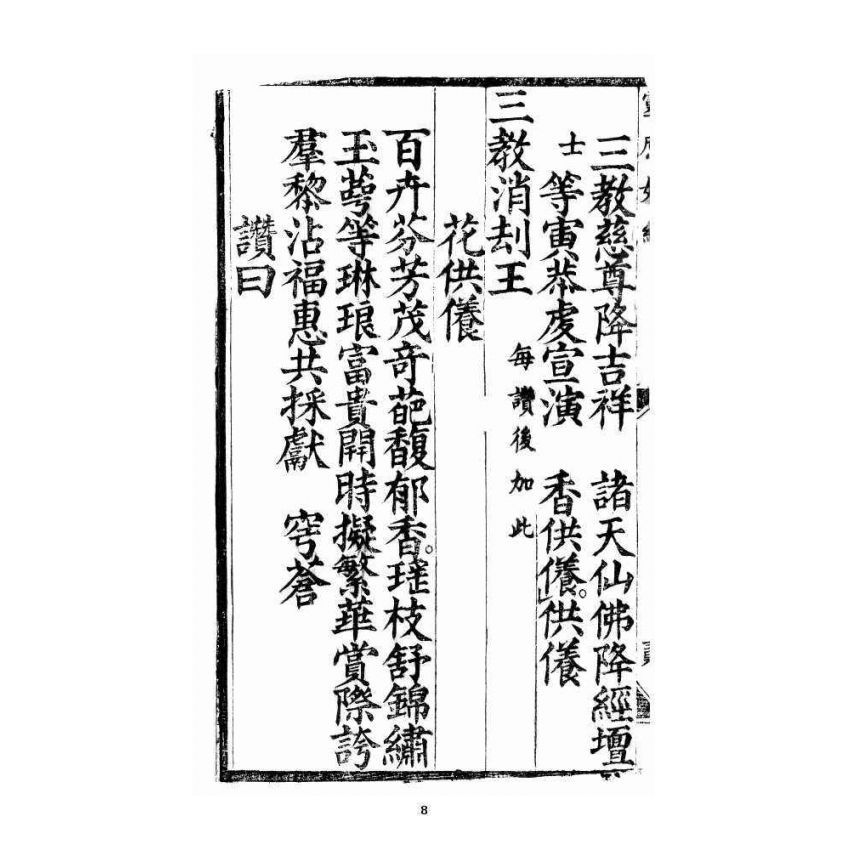 三教慈尊降吉祥　諸天仙佛降經壇
士等寅恭虔宣演　香供養。供養
三教消刦王　每讚後加此
花供養
百卉芬芳茂奇葩馥郁香。瑶枝舒錦繡
玉萼等琳琅富貴開時擬繁華賞際誇
羣黎沾福惠共採獻　穹蒼
讚曰
8